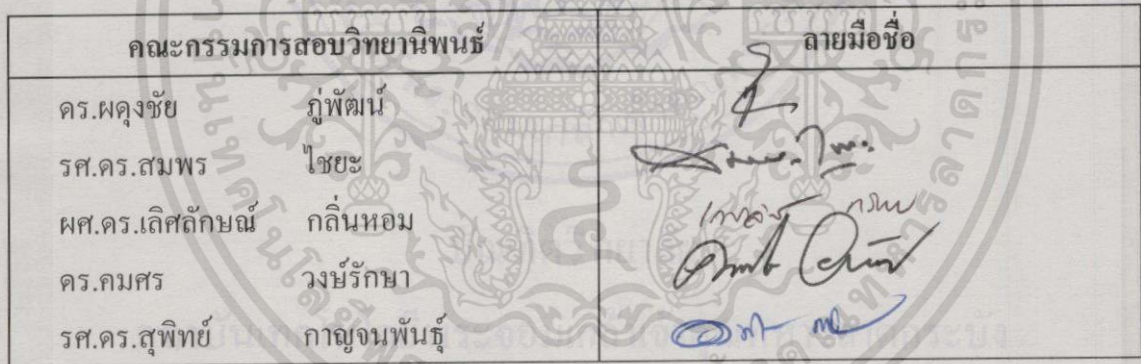 คณะกรรมการสอบวิทยานิพนธ์ ลายมือชื่อ
ดร.ผดุงชัย ภู่พัฒน์
รศ.ดร.สมพร ไชยะ
ผศ.ดร.เลิศลักษณ์ กลิ่นหอม
ดร.คมศร วงษ์รักษา
รศ.ดร.สุพิทย์ กาญจนพันธุ์